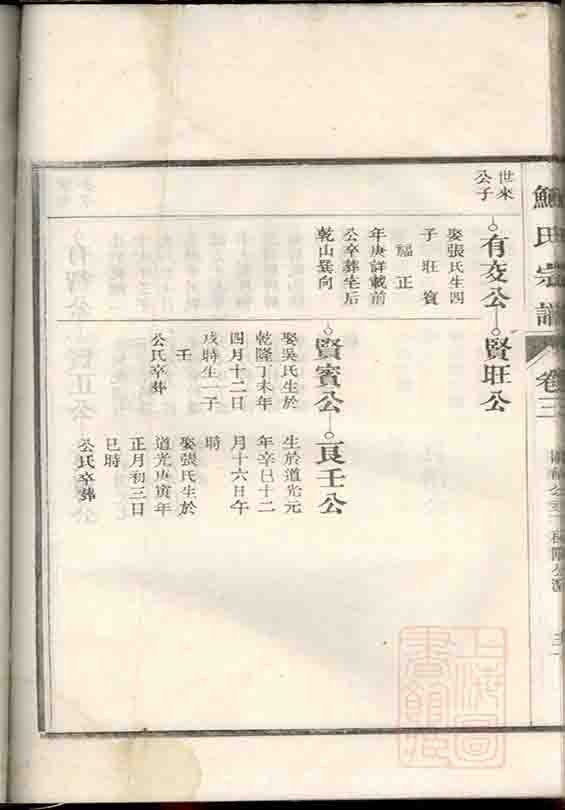 氏宗譜
卷三
世來
公子
有交公
娶張氏生四
子 旺 賓
福 正
年庚詳載前
公卒葬宅后
乾山巽向
賢旺公
賢賓公
娶吳氏生於
乾隆丁未年
四月十二日
戌時生一子
壬
公氏卒葬
良壬公
生於道光元
年辛巳十二
月十六日午
時
娶張氏生於
道光庚寅年
正月初三日
巳時
公氏卒葬
上海圖
書館藏